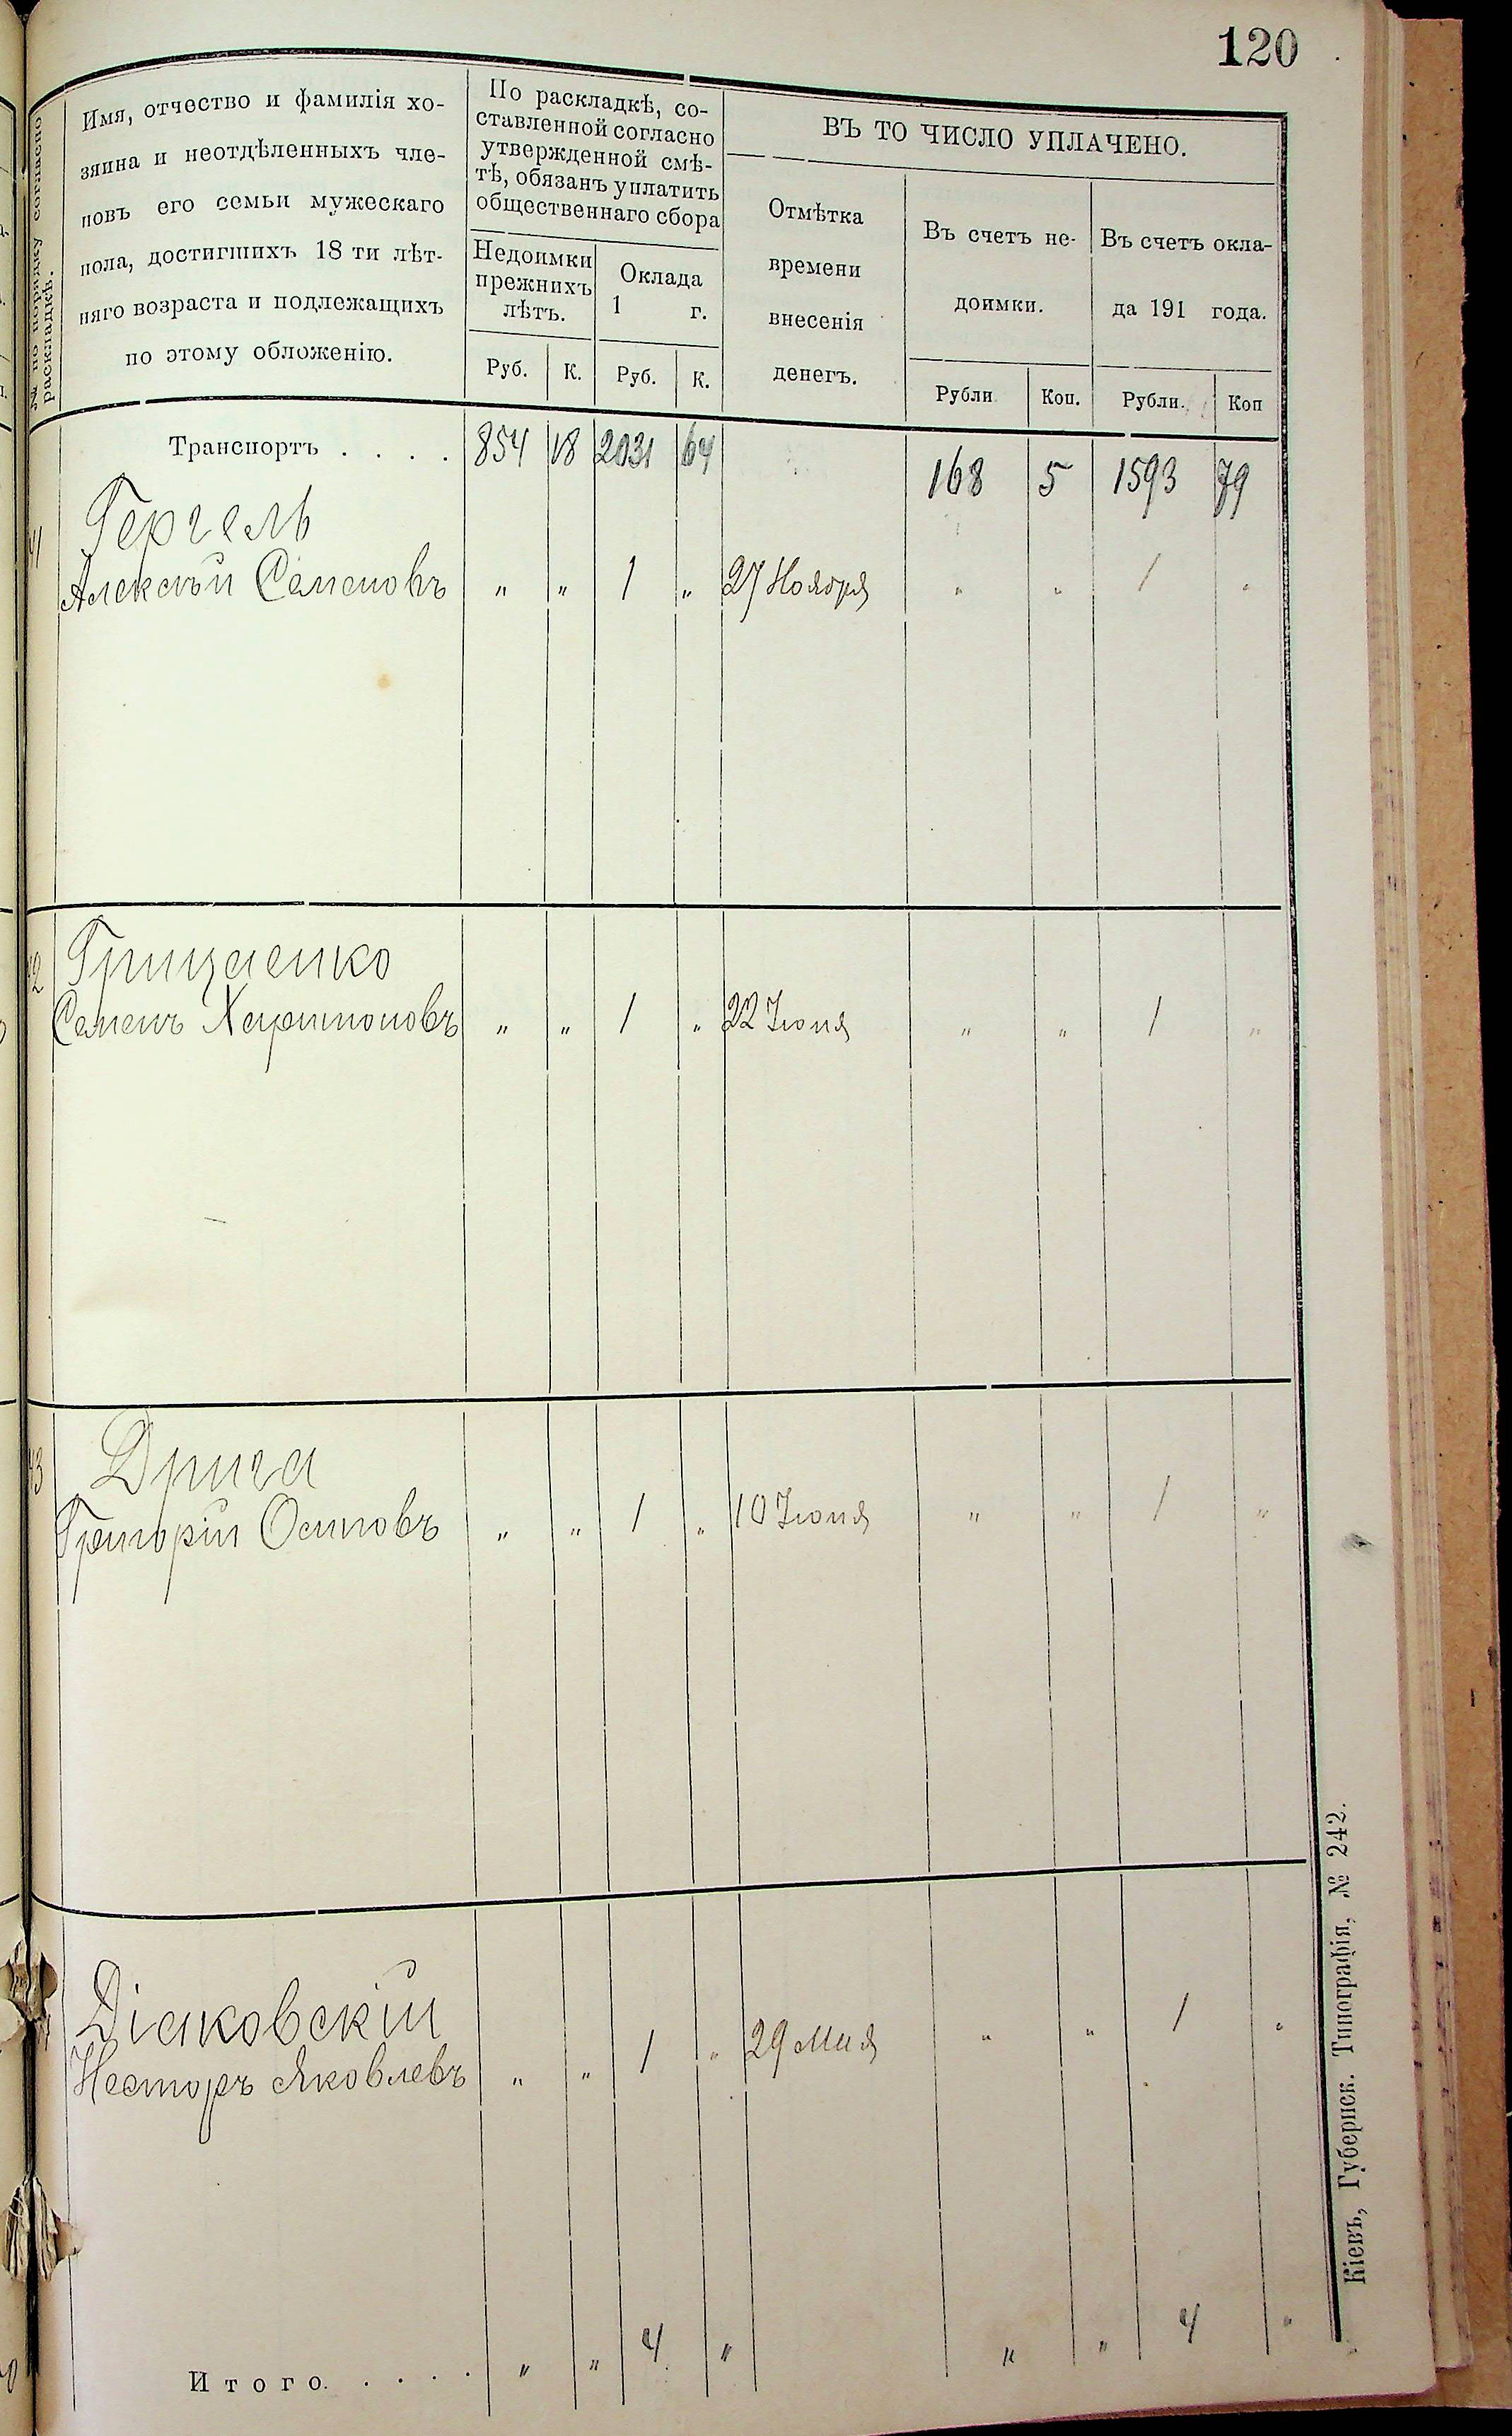 120
№ по порядку согласно раскладкѣ.
Имя, отчество и фамилія хо-
зяина и неотдѣленныхъ чле-
новъ его семьи мужескаго
пола, достигшихъ 18 ти лѣт-
няго возраста и подлежащихъ
по этому обложенію.
По раскладкѣ, со-
ставленной согласно
утвержденной смѣ-
тѣ, обязанъ уплатить
общественнаго сбора
Недоимки
прежнихъ
лѣтъ.
Оклада
1 г.
Руб. К. Руб. К.
ВЪ ТО ЧИСЛО УПЛАЧЕНО.
Отмѣтка
времени
внесенія
денегъ.
Въ счетъ не-
доимки.
Въ счетъ окла-
да 191 года.
Рубли Коп. Рубли. Коп
Транспортъ . . . . 854 18 2031 64 168 5 1593 79
Гергель
Алексѣй Семеновъ " " 1 " 27 Ноября " " 1 "
2 Грицаенко
Семенъ Харитоновъ " " 1 " 22 Іюня " " 1 "
3 Дрига
Григорій Осиповъ " " 1 " 10 Іюня " " 1 "
Діаковскій
Несторъ Яковлевъ " " 1 " 29 Мая " " 1 "
Итого. . . . . " " 4 " " " 4 "
Кіевъ, Губернск. Типографія, № 242.